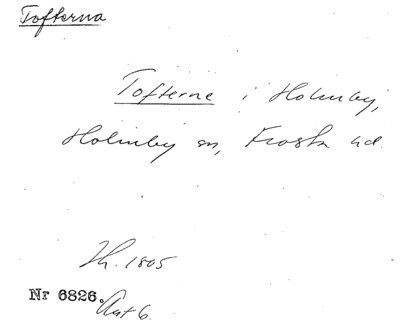 Tofterna
Tofterne i Holmby,
Holmby sn, Frosta hd.
Th. 1805
Nr 6826. Aut 6.